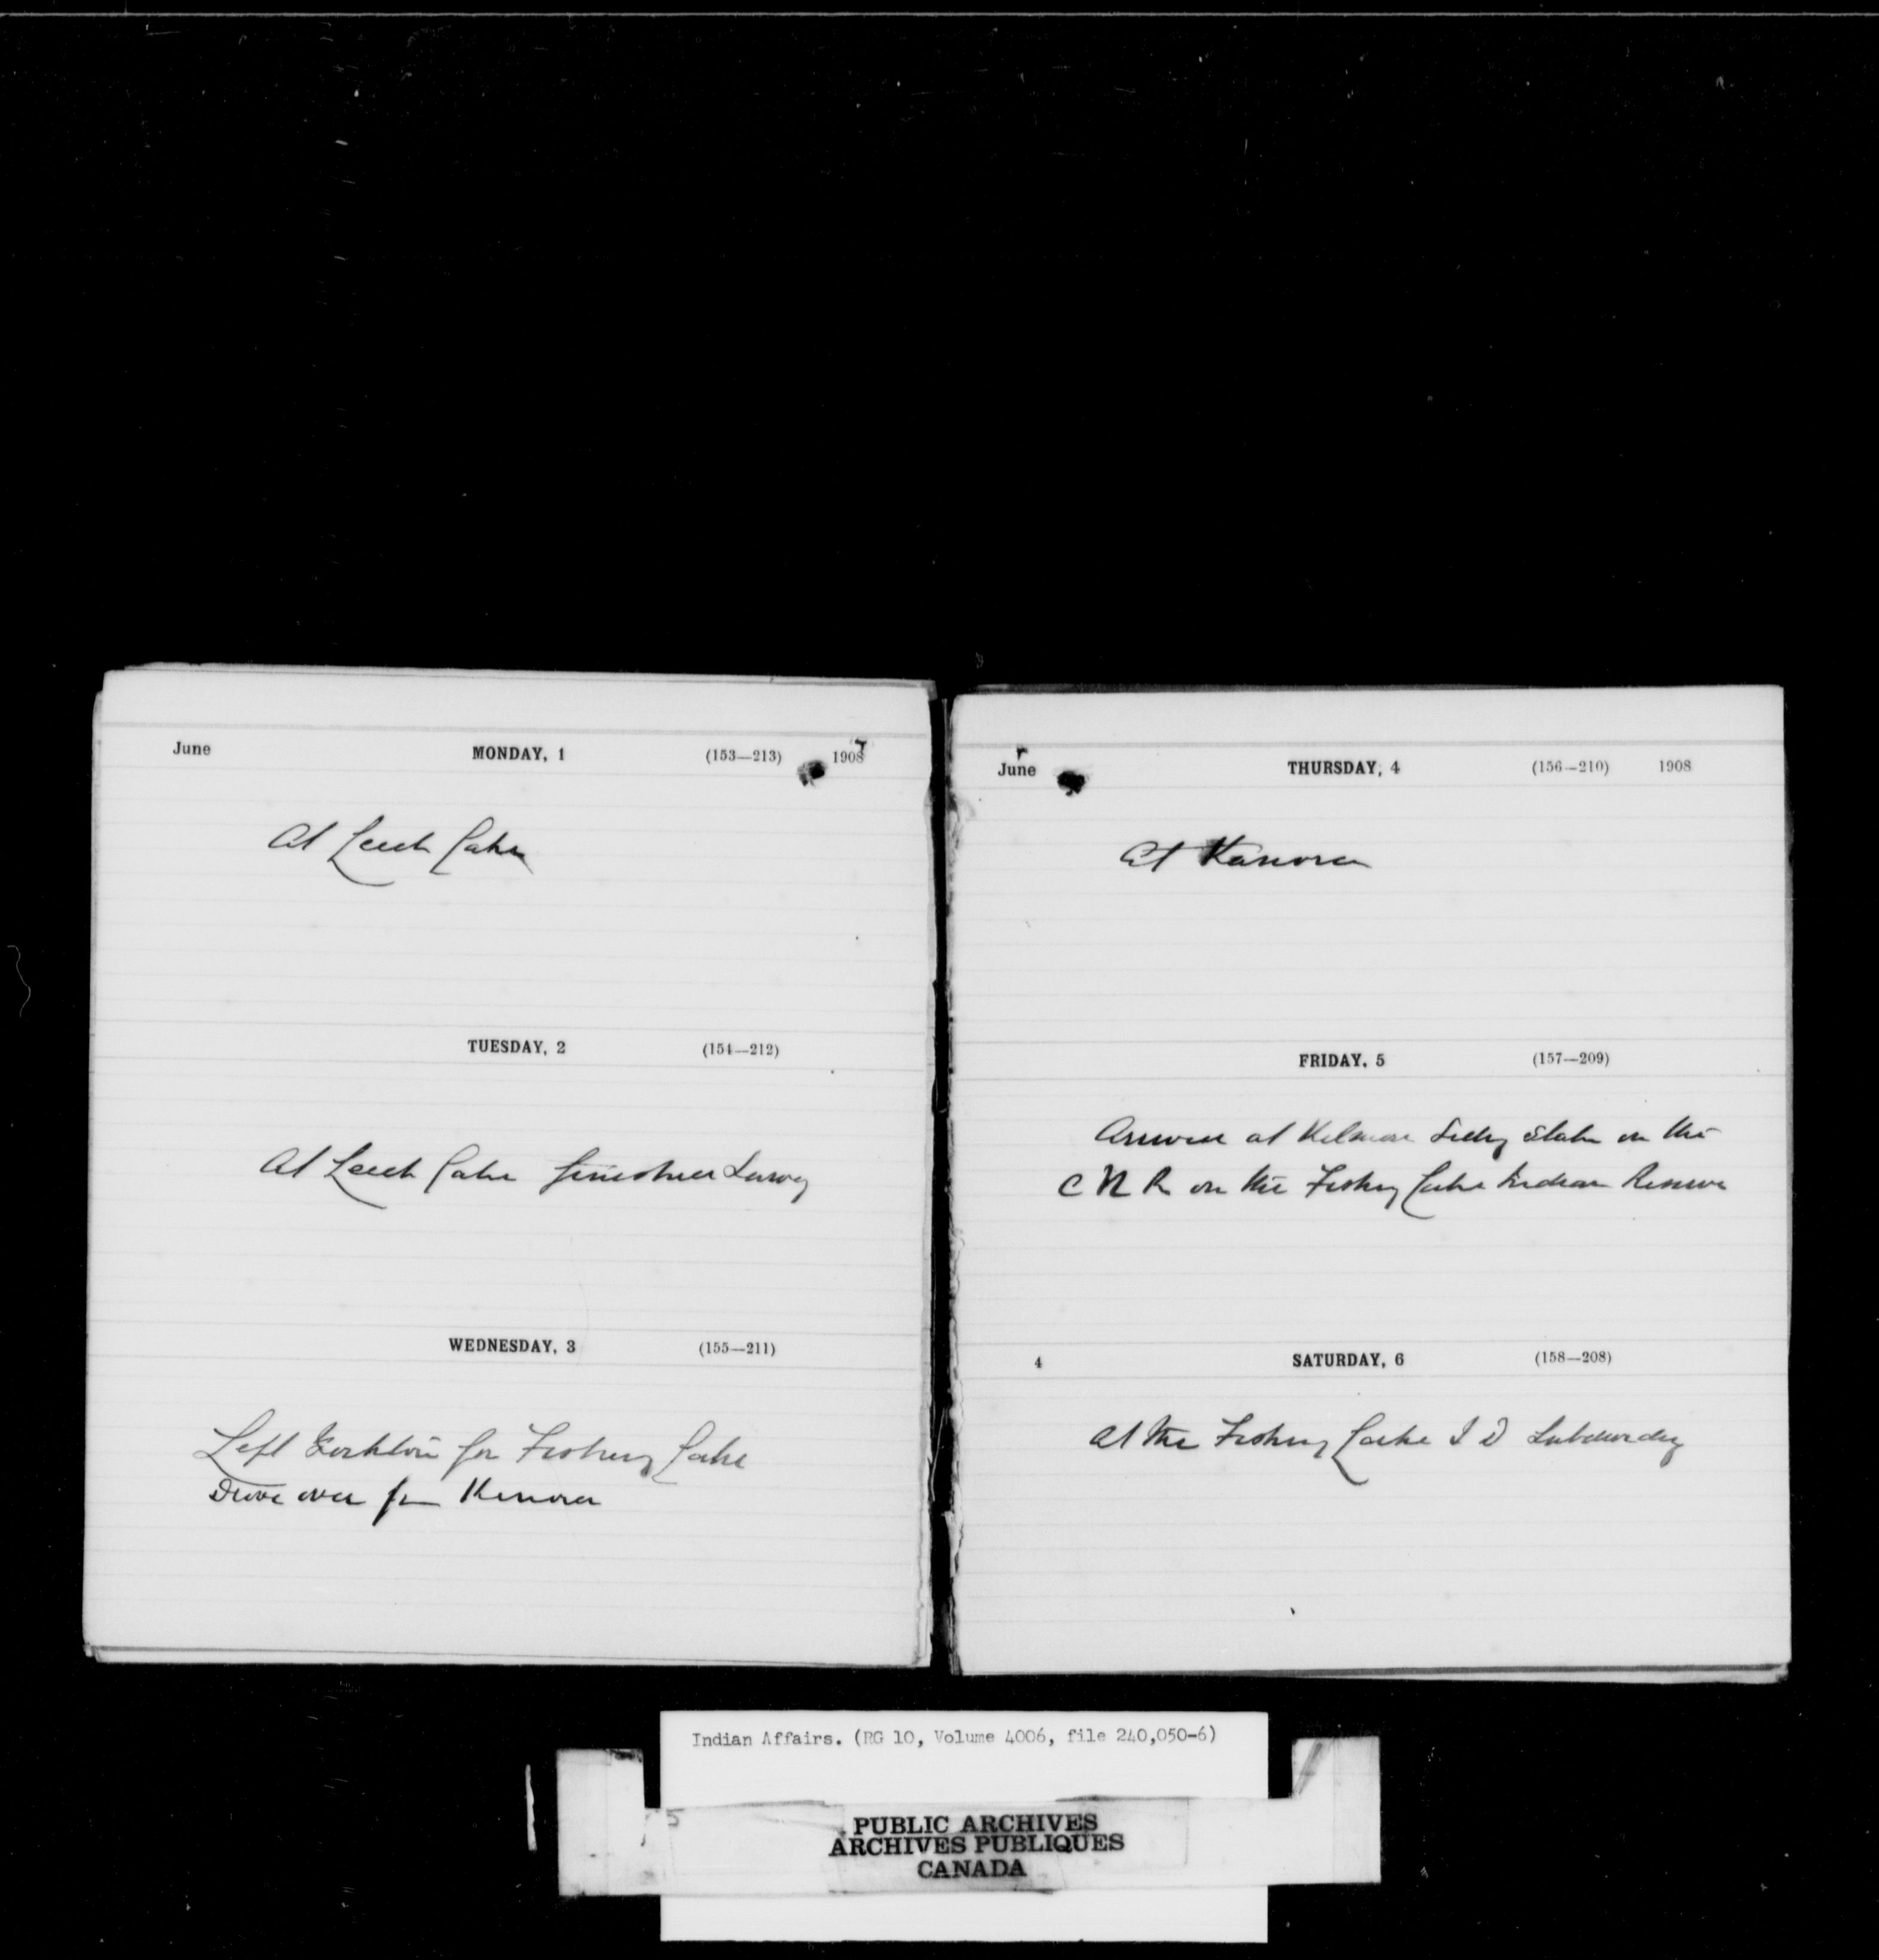 June MONDAY, 1 (153—213) 1908 7
At Leech Lake
TUESDAY, 2 (154—212)
At Leech Lake finished Survey
WEDNESDAY, 3 (155—211)
Left Yorkton for Fishing Lake
Drove over from Kanora
June THURSDAY, 4 (156—210) 1908
At Kanora
FRIDAY, 5 (157—209)
Arrived at on the
C N R on the Fishing Lake Indian Reserve
4 SATURDAY, 6 (158—208)
At the Fishing Lake I R Subdividing
Indian Affairs. (RG 10, Volume 4006, file 240,050-6)
5
PUBLIC ARCHIVES
ARCHIVES PUBLIQUES
CANADA